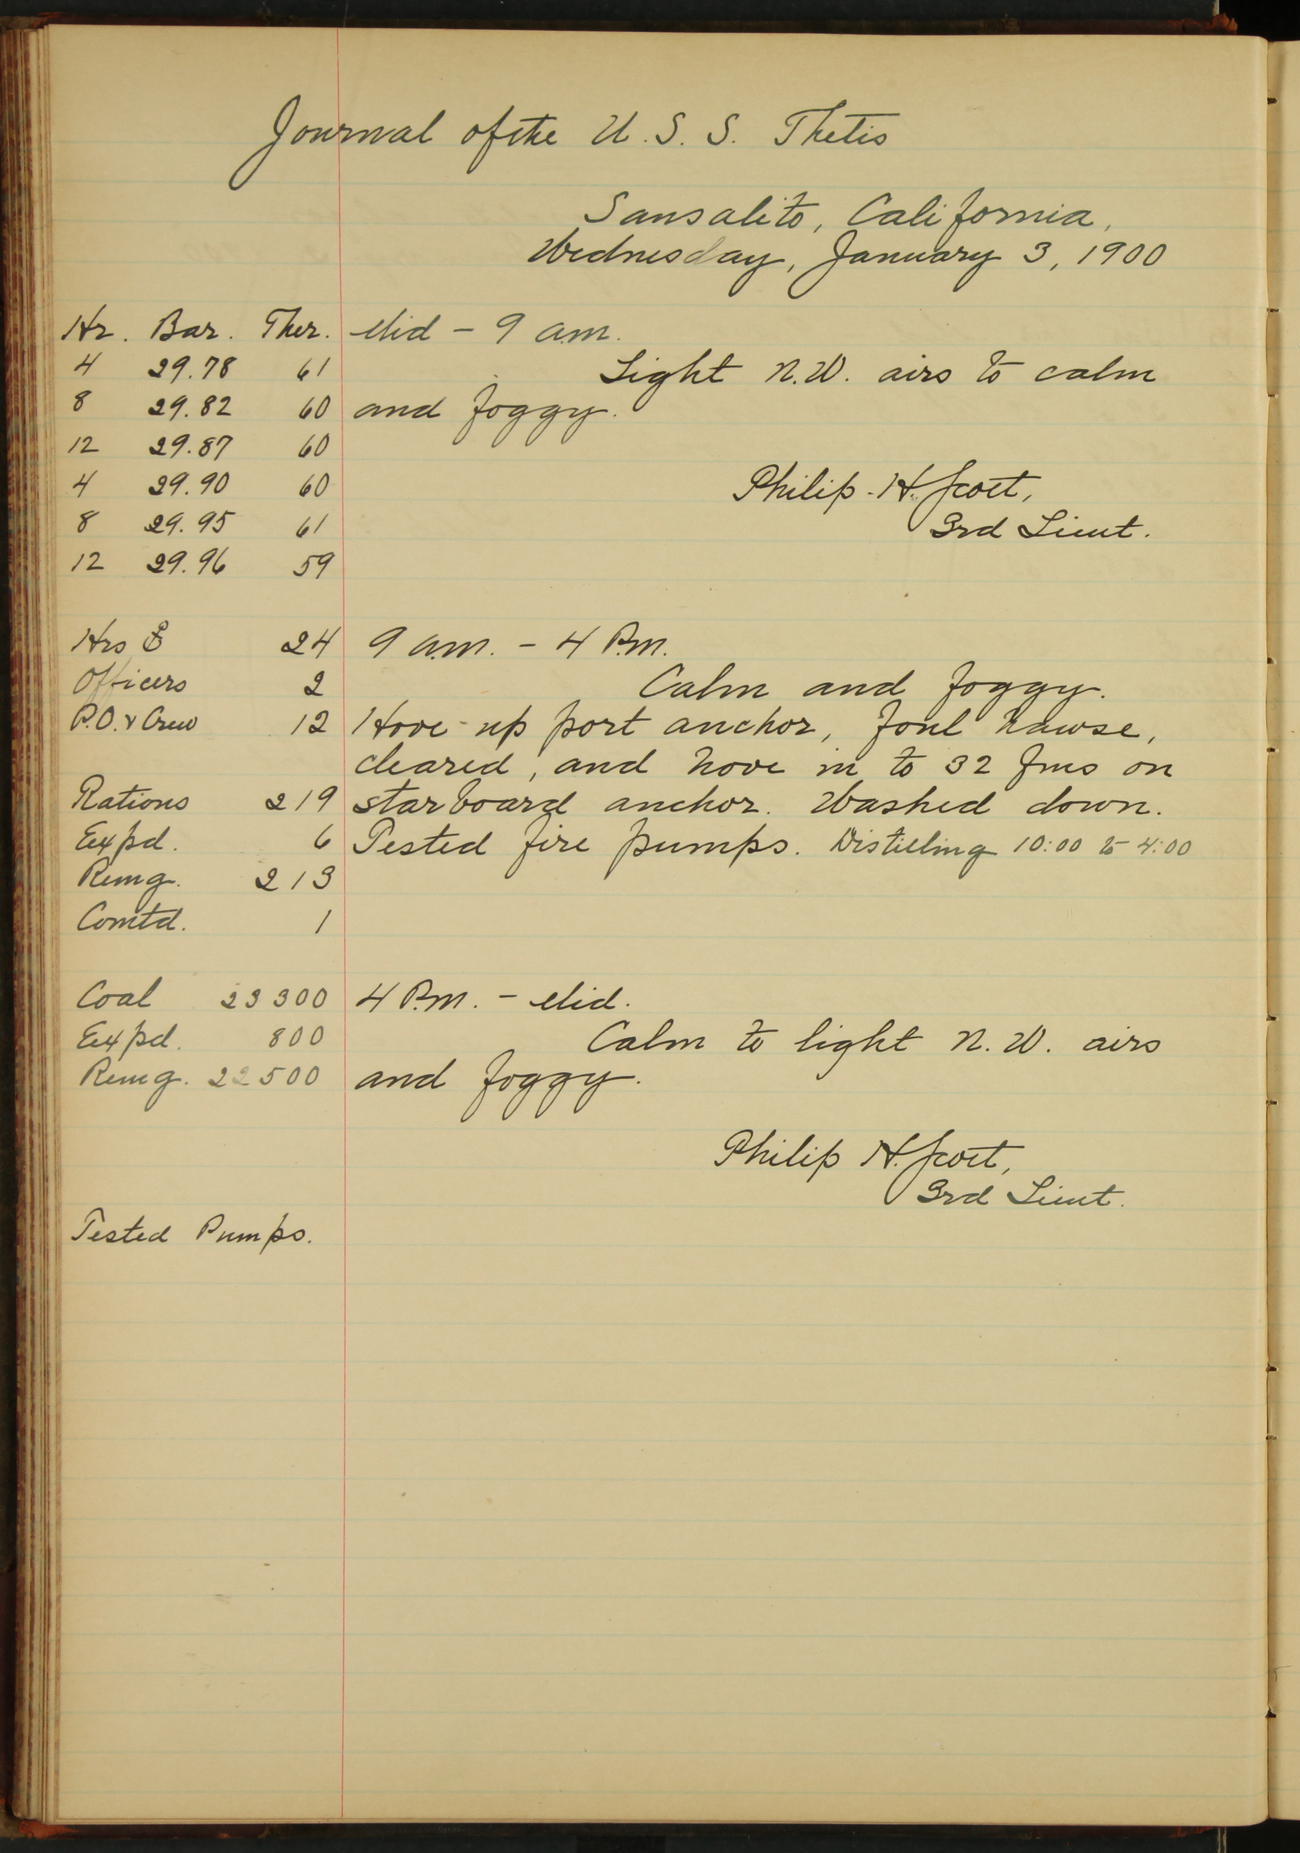 Journal of the U.S.S. Thetis
Sausalito, California,
Wednesday, January 3, 1900
Hr. Bar. Ther. Mid - 9 a.m.
4 29.78 61 Light N.W. airs to calm
8 29.82 60 and foggy.
12 29.87 60
4 29.90 60 Philip H. Scott,
8 29.95 61 3rd Lieut.
12 29.96 59
Hrs ⚓ 24 9 a.m. - 4 P.m.
Officers 2 Calm and foggy.
P.O. & Crew 12 Hove up port anchor, foul hawse,
cleared, and hove in to 32 fms on
Rations 219 starboard anchor. Washed down.
Expd. 6 Tested fire pumps. Distilling 10:00 to 4:00
Remg. 213
Comtd. 1
Coal 23300 4 P.m. - Mid.
Expd. 800 Calm to light N.W. airs
Remg. 22500 and foggy.
Philip H. Scott,
3rd Lieut.
Tested Pumps.